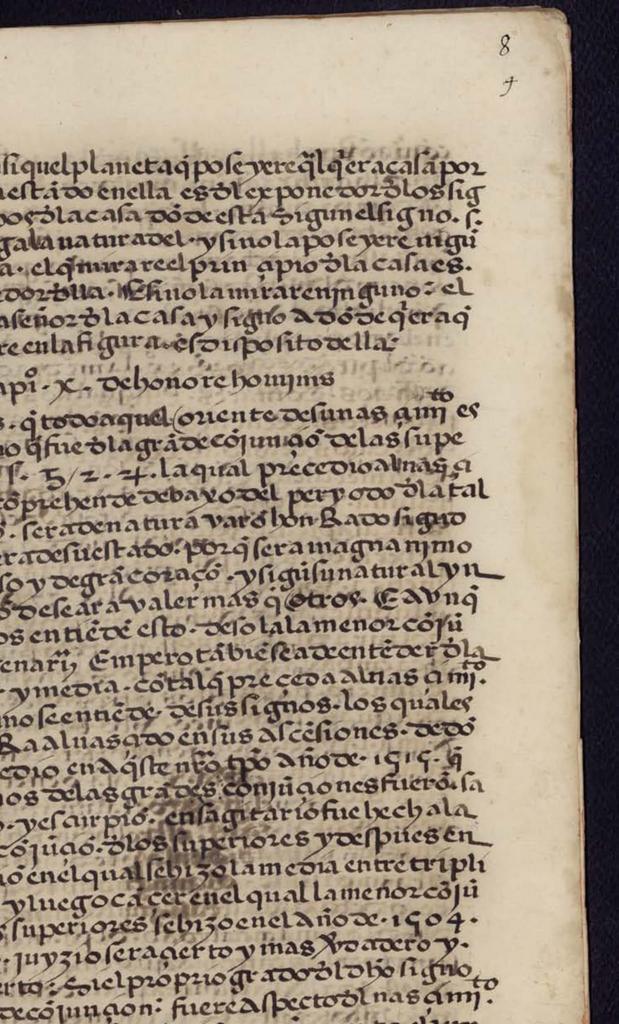 8
si quel planeta q̄ poseyere q̄l q̄era casa por
estādo en ella es đl exponedor đlos sig
đla casa dōde está Sigun el signo . s.
natura del . y si no la poseyere nigū
a . el q̄ mirare el prinçipio đla casa es .
edor đlla . E si no la mirare ninguno : el
señor đla casa y signo adōde q̄era q̄
re en la figura . es disposito della :
apı̄º . x . de honore hominis
s . q̄ todo aquel oriente de su nasçimi̅to es
o q̄ fue đla grāde cōiunçiō de las supe
♄ / 2 . ♃ . la qual preçedio al nasçi
cōprehende debaxo del peryodo đla tal
. sera de natura varō honRado sigūd
era de su estado . porq̄ sera magnanimo
so y de grā coraçō . y sigū su natural yn
deseara valer mas q̄ otros . E avnq̄
os entiēdē esto . de sola la menor cōiū
enarij Empero tābiē se a de entēder đla
. y media . cō tal q̄ preçeda al nasçimi̅to .
no se entiēde . de sus signos . los quales
en sus asçēsiones . de dō
edio en aq̄ste nr̄o tp̄o Año de . 1515 . q̄
os de las grādes cōiūçiones fuerō . sa
. y escurpiō . en sagitario fue hecha la
cōiūçiō . đlos superiores y despues en
en el qual se hizo la media entre tripli
y luego cāçer en el qual la menor cōiū
superiores se hizo en el Año de . 1504 .
. iuyzio sera çierto y mas v̄dadero y .
erto : Si el proprio grado đl dho signo
de cōiunçion : fuere aspecto đl nasçimi̅to .